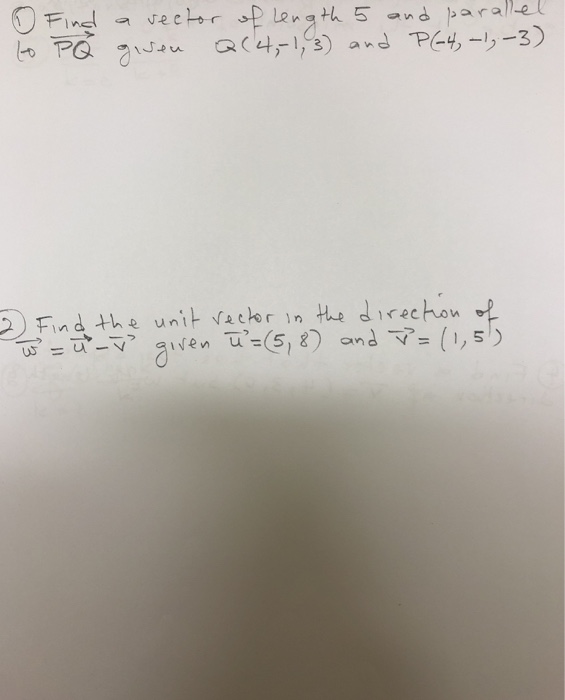 ① Find a vector of length 5 and parallel
to PQ⃗ given Q(4,-1,3) and P(-4,-1,-3)
② Find the unit vector in the direction of
w⃗ = u⃗ - v⃗ given u⃗ = (5,8) and v⃗ = (1,5)